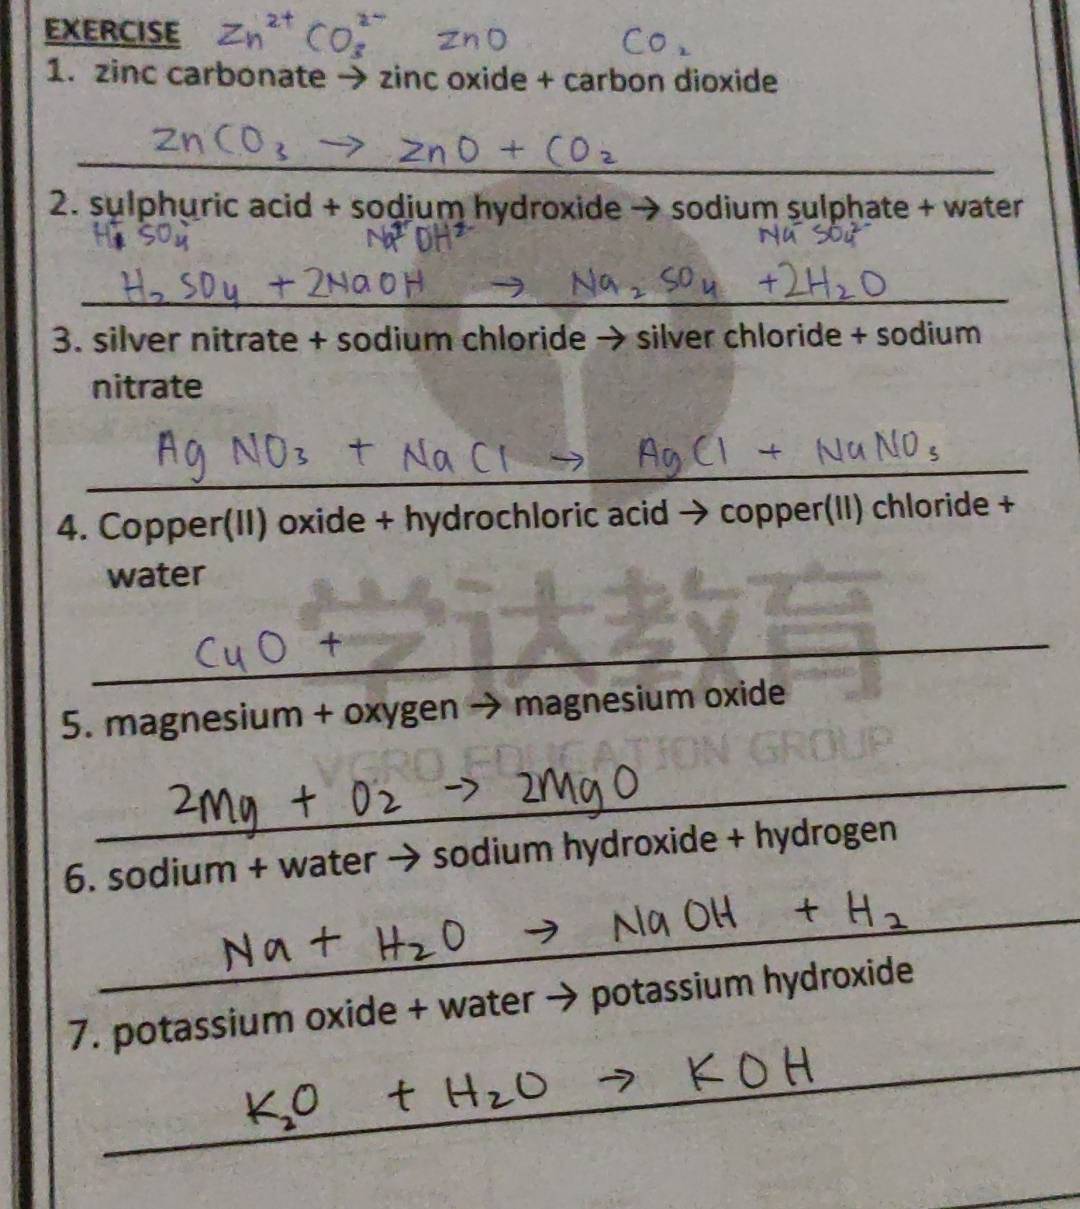 EXERCISE Zn²⁺ CO₃²⁻ ZnO CO₂
1. zinc carbonate → zinc oxide + carbon dioxide
ZnCO₃ → ZnO + CO₂
2. sulphuric acid + sodium hydroxide → sodium sulphate + water
SO₄ Na OH Na SO₄²⁻
H₂SO₄ + 2NaOH → Na₂SO₄ + 2H₂O
3. silver nitrate + sodium chloride → silver chloride + sodium
nitrate
AgNO₃ + NaCl → AgCl + NaNO₃
4. Copper(II) oxide + hydrochloric acid → copper(II) chloride +
water
学达教育
CuO +
5. magnesium + oxygen → magnesium oxide
EDUCATION GROUP
2Mg + O₂ → 2MgO
6. sodium + water → sodium hydroxide + hydrogen
Na + H₂O → NaOH + H₂
7. potassium oxide + water → potassium hydroxide
K₂O + H₂O → KOH